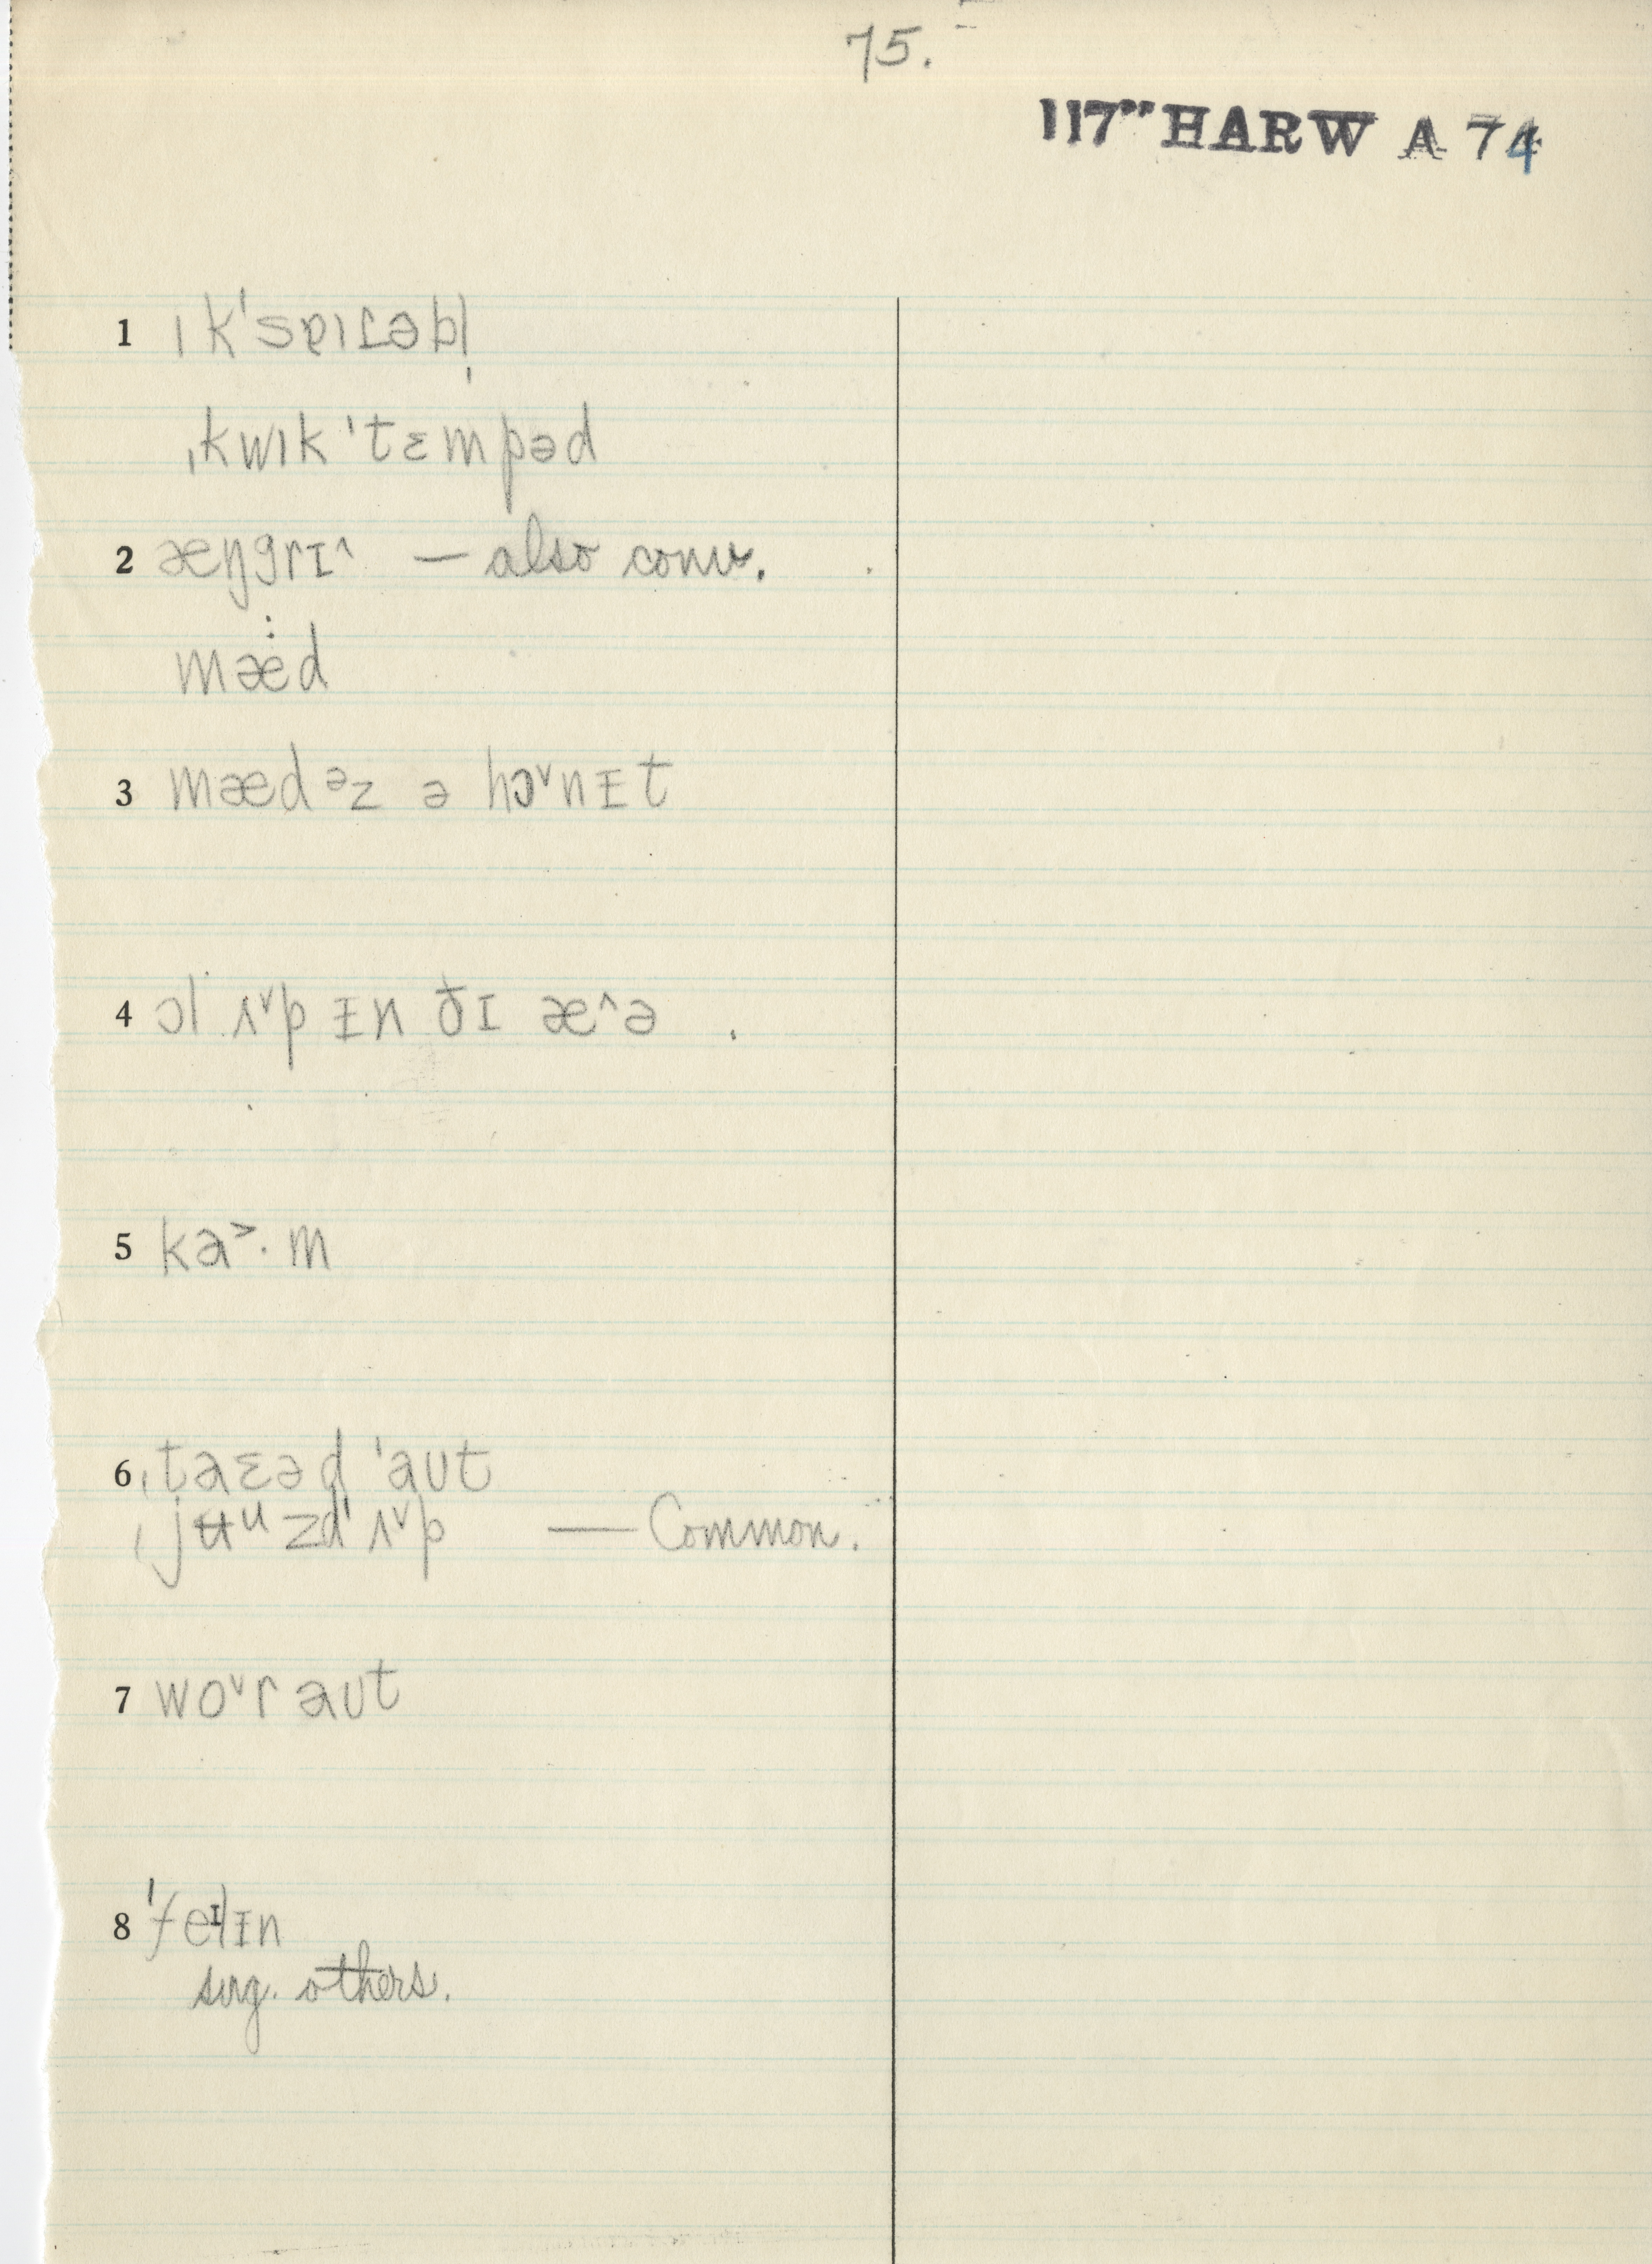 75.
117" HARW A 74
1 ɪk'spɐɪɾəbl̩
ˌkwɪk 'tɛmpəd
2 æŋgrɪ^ — also conv.
mæ:d
3 mædəz ə hɔ˅nɪt
4 ɔl ʌ˅p ɪn ðɪ æ^ə
5 ka˃·m
6 ˌtaɛəd 'aut
ˌjʉᵘzd 'ʌ˅p — Common.
7 wo˅r aut
8 'feᶦlɪn
sug. others.